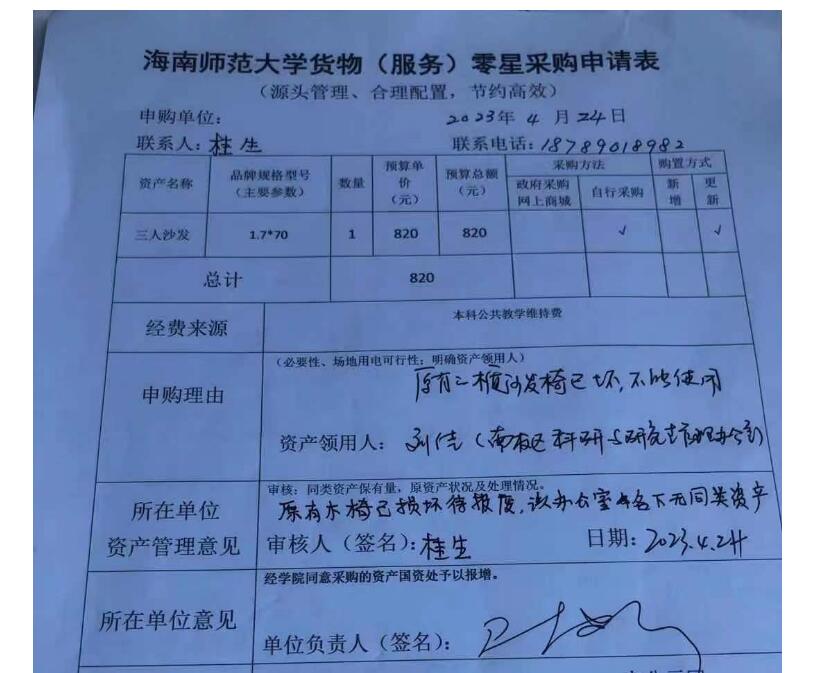 海南师范大学货物（服务）零星采购申请表
（源头管理、合理配置，节约高效）
申购单位：
2023年 4 月 24日
联系人：桂生
联系电话：18789018982
资产名称 品牌规格型号（主要参数） 数量 预算单价（元） 预算总额（元） 采购方法 购置方式
政府采购网上商城 自行采购 新增 更新
三人沙发 1.7*70 1 820 820 √ √
总计 820
经费来源 本科公共教学维持费
申购理由
（必要性、场地用电可行性；明确资产领用人）
原有二横沙发椅已坏，不能使用
资产领用人：刘佳（南校区科研与研究生管理办公室）
所在单位
资产管理意见
审核：同类资产保有量，原资产状况及处理情况。
原有木椅已损坏待报废，该办公室名下无同类资产
审核人（签名）：桂生
日期：2023.4.24
所在单位意见
经学院同意采购的资产国资处予以报增。
单位负责人（签名）：